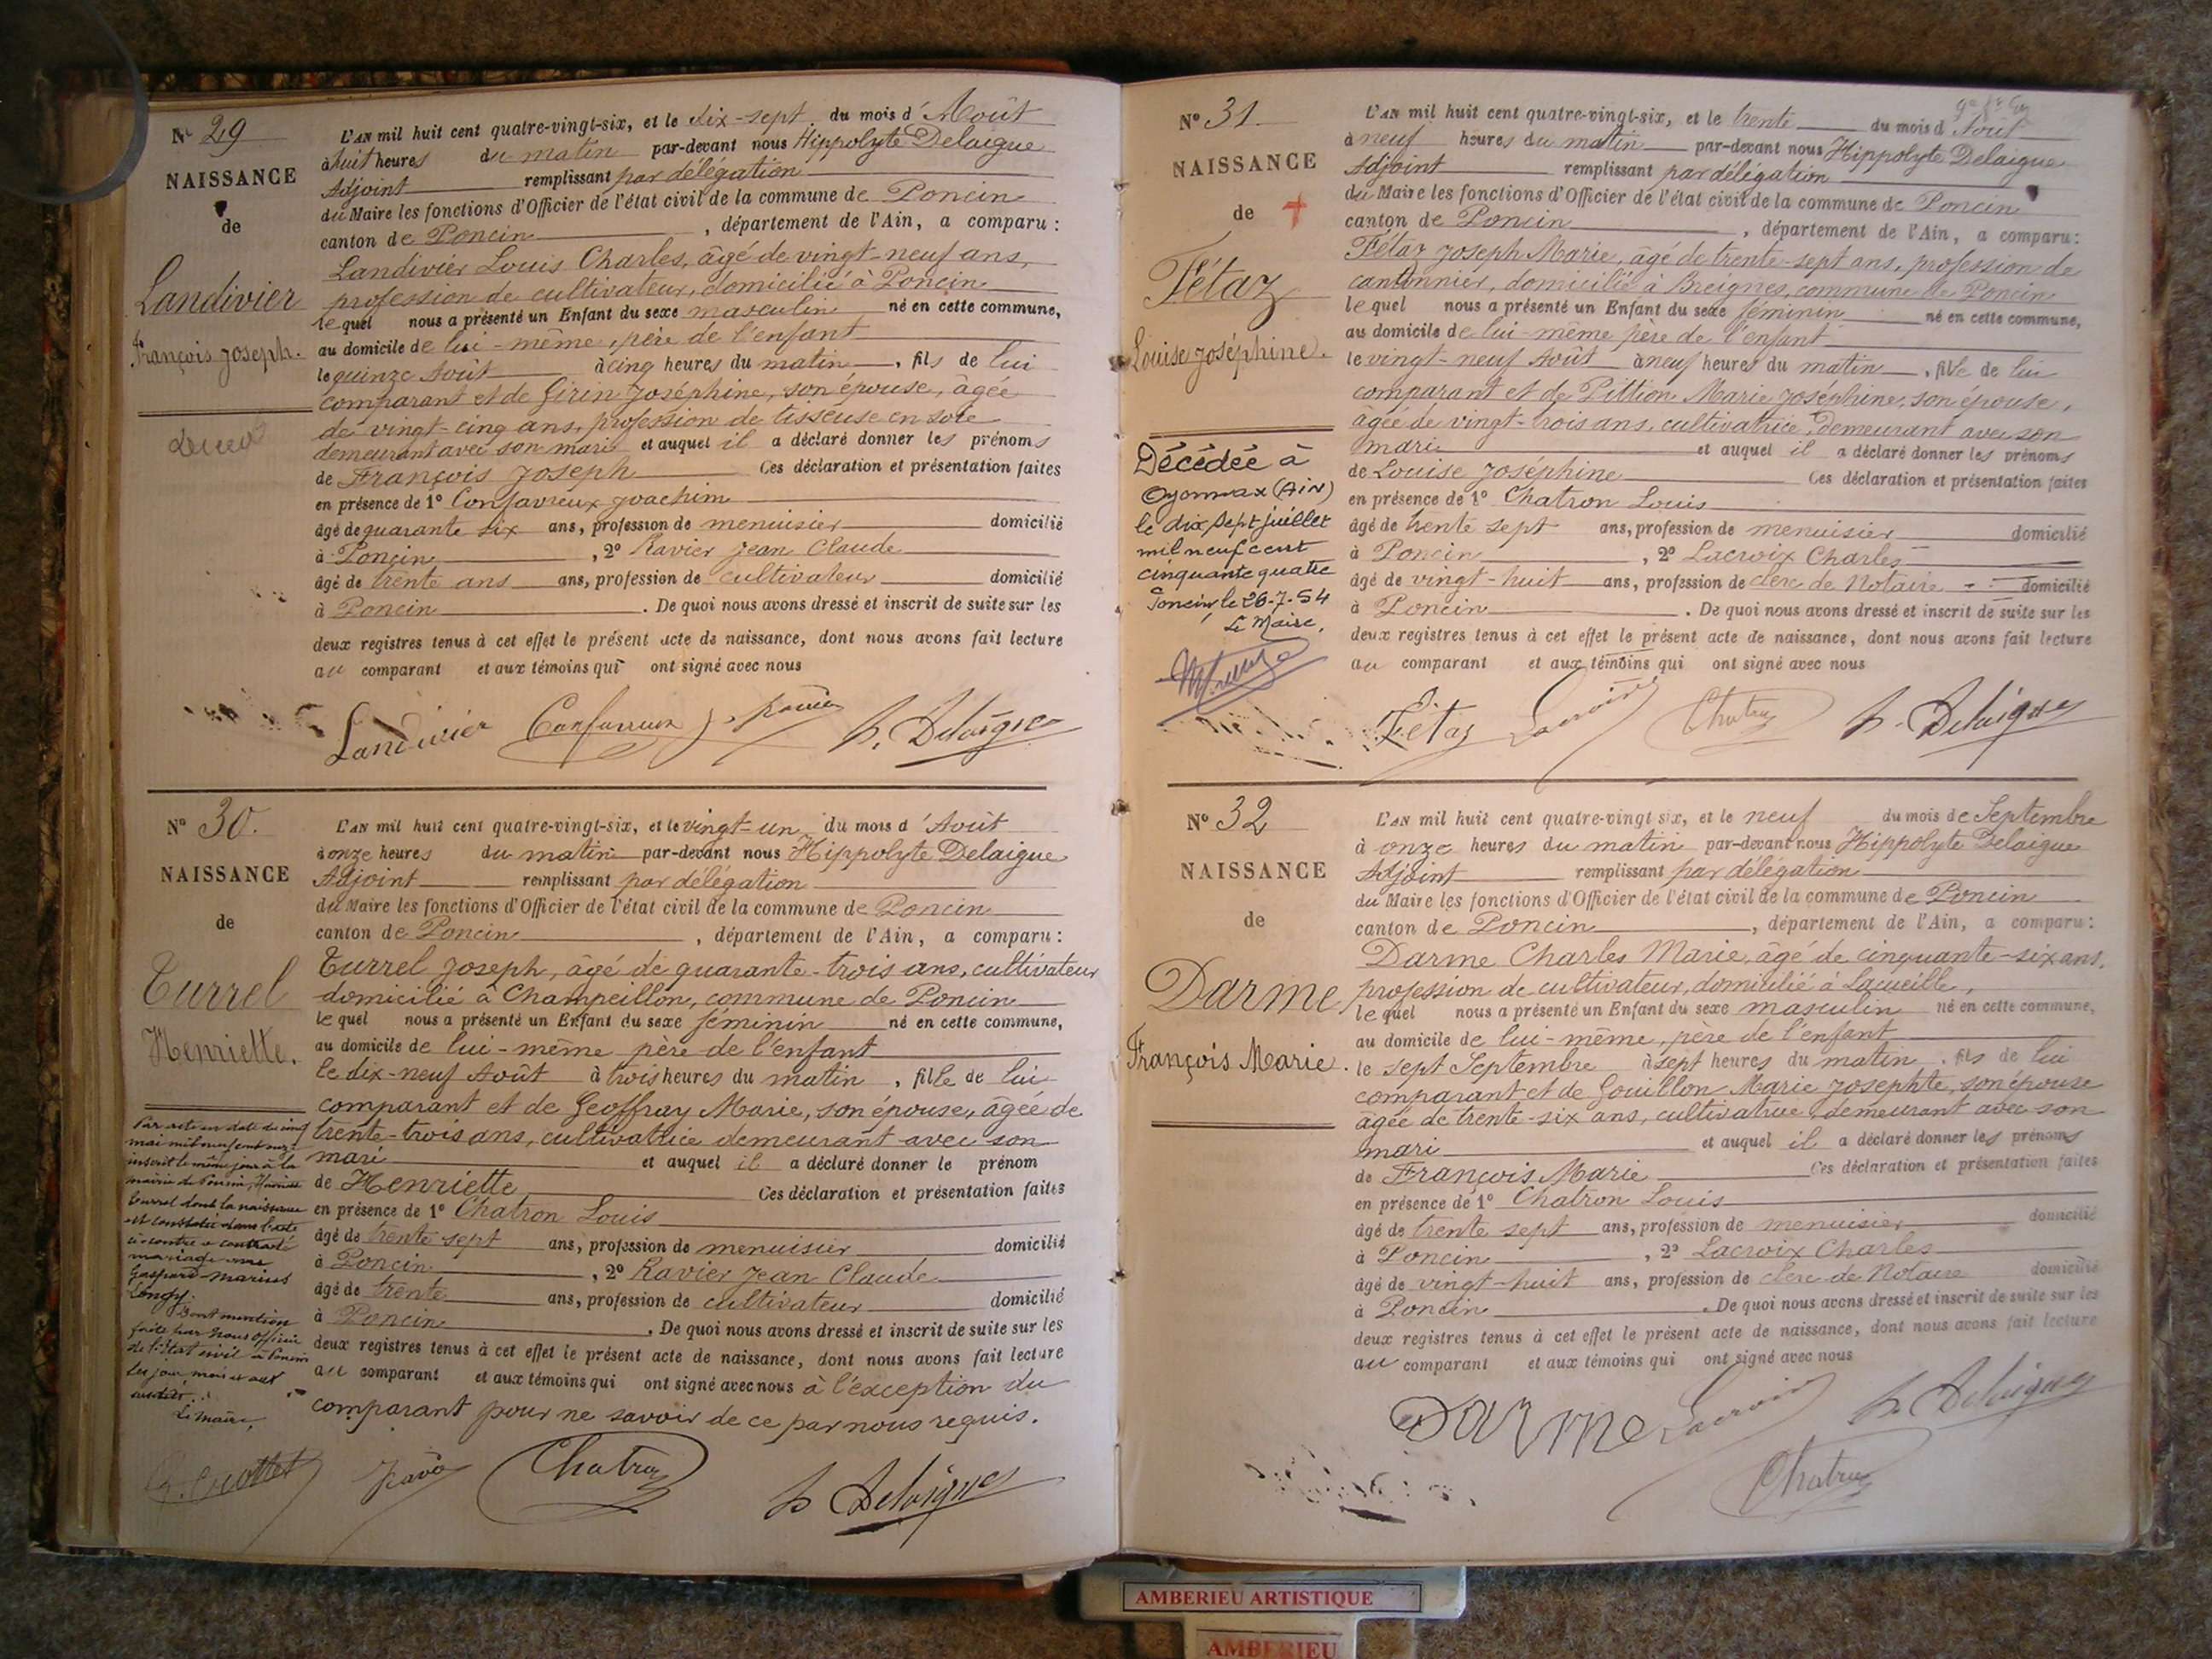 Nº 29
NAISSANCE
de
Landivier
François Joseph.
L'AN mil huit cent quatre-vingt-six, et le dix-sept du mois d'Août
à huit heures du matin par-devant nous Hippolyte Delaigue
Adjoint remplissant par délégation
du Maire les fonctions d'Officier de l'état civil de la commune de Poncin
canton de Poncin, département de l'Ain, a comparu :
Landivier Louis Charles, âgé de vingt-neuf ans,
profession de cultivateur, domicilié à Poncin
lequel nous a présenté un Enfant du sexe masculin né en cette commune,
au domicile de lui-même, père de l'enfant
le quinze Août à cinq heures du matin, fils de lui
comparant et de Girin Joséphine, son épouse, âgée
de vingt-cinq ans, profession de tisseuse en soie
demeurant avec son mari et auquel il a déclaré donner les prénoms
de François Joseph Ces déclaration et présentation faites
en présence de 1º Confavreux Joachim
âgé de quarante six ans, profession de menuisier domicilié
à Poncin, 2º Ravier Jean Claude
âgé de trente ans ans, profession de cultivateur domicilié
à Poncin. De quoi nous avons dressé et inscrit de suite sur les
deux registres tenus à cet effet le présent acte de naissance, dont nous avons fait lecture
au comparant et aux témoins qui ont signé avec nous
Landivier Confavreux J. Ravier h. Delaigue
Nº 30.
NAISSANCE
de
Turrel
Henriette.
L'AN mil huit cent quatre-vingt-six, et le vingt-un du mois d'Août
à onze heures du matin par-devant nous Hippolyte Delaigue
Adjoint remplissant par délégation
du Maire les fonctions d'Officier de l'état civil de la commune de Poncin
canton de Poncin, département de l'Ain, a comparu :
Turrel Joseph, âgé de quarante-trois ans, cultivateur
domicilié à Champeillon, commune de Poncin
lequel nous a présenté un Enfant du sexe féminin né en cette commune,
au domicile de lui-même père de l'enfant
le dix-neuf Août à trois heures du matin, fille de lui
comparant et de Geoffray Marie, son épouse, âgée de
trente-trois ans, cultivatrice demeurant avec son
mari et auquel il a déclaré donner le prénom
de Henriette Ces déclaration et présentation faites
en présence de 1º Chatron Louis
âgé de trente sept ans, profession de menuisier domicilié
à Poncin, 2º Ravier Jean Claude
âgé de trente ans, profession de cultivateur domicilié
à Poncin. De quoi nous avons dressé et inscrit de suite sur les
deux registres tenus à cet effet le présent acte de naissance, dont nous avons fait lecture
au comparant et aux témoins qui ont signé avec nous à l'exception du
comparant pour ne savoir de ce par nous requis.
Par acte en date du cinq
mai mil neuf cent onze
inscrit le même jour à la
mairie de Poncin, Henriette
Turrel dont la naissance
est constatée dans l'acte
ci contre a contracté
mariage avec
Gaspard Marius
Longy.
Dont mention
faite par nous officier
de l'Etat civil à Poncin
les jour, mois et an
susdits.
Le maire,
Ravier Chatron h Delaigue
Nº 31
NAISSANCE
de +
Fétaz
Louise Joséphine.
L'AN mil huit cent quatre-vingt-six, et le trente du mois d'Août
à neuf heures du matin par-devant nous Hippolyte Delaigue
Adjoint remplissant par délégation
du Maire les fonctions d'Officier de l'état civil de la commune de Poncin
canton de Poncin, département de l'Ain, a comparu :
Fétaz Joseph Marie, âgé de trente-sept ans, profession de
cantonnier, domicilié à Breignes, commune de Poncin
lequel nous a présenté un Enfant du sexe féminin né en cette commune,
au domicile de lui-même père de l'enfant
le vingt-neuf Août à neuf heures du matin, fille de lui
comparant et de Pittion Marie Joséphine, son épouse,
âgée de vingt-trois ans, cultivatrice demeurant avec son
mari et auquel il a déclaré donner les prénoms
de Louise Joséphine Ces déclaration et présentation faites
en présence de 1º Chatron Louis
âgé de trente sept ans, profession de menuisier domicilié
à Poncin, 2º Lacroix Charles
âgé de vingt-huit ans, profession de clerc de Notaire domicilié
à Poncin. De quoi nous avons dressé et inscrit de suite sur les
deux registres tenus à cet effet le présent acte de naissance, dont nous avons fait lecture
au comparant et aux témoins qui ont signé avec nous
Décédée à
Oyonnax (AIN)
le dix sept juillet
mil neuf cent
cinquante quatre
Poncin, le 26-7-54
Le Maire,
Fétaz Lacroix Chatron h. Delaigue
Nº 32
NAISSANCE
de
Darme
François Marie.
L'AN mil huit cent quatre-vingt six, et le neuf du mois de Septembre
à onze heures du matin par-devant nous Hippolyte Delaigue
Adjoint remplissant par délégation
du Maire les fonctions d'Officier de l'état civil de la commune de Poncin
canton de Poncin, département de l'Ain, a comparu :
Darme Charles Marie, âgé de cinquante-six ans,
profession de cultivateur, domicilié à Lacueille,
lequel nous a présenté un Enfant du sexe masculin né en cette commune,
au domicile de lui-même, père de l'enfant
le sept Septembre à sept heures du matin, fils de lui
comparant et de Gouillon Marie Josephte, son épouse
âgée de trente-six ans, cultivatrice demeurant avec son
mari et auquel il a déclaré donner les prénoms
de François Marie Ces déclaration et présentation faites
en présence de 1º Chatron Louis
âgé de trente sept ans, profession de menuisier domicilié
à Poncin, 2º Lacroix Charles
âgé de vingt-huit ans, profession de clerc de Notaire domicilié
à Poncin. De quoi nous avons dressé et inscrit de suite sur les
deux registres tenus à cet effet le présent acte de naissance, dont nous avons fait lecture
au comparant et aux témoins qui ont signé avec nous
Darme Lacroix h. Delaigue
Chatron
AMBERIEU ARTISTIQUE
AMBERIEU